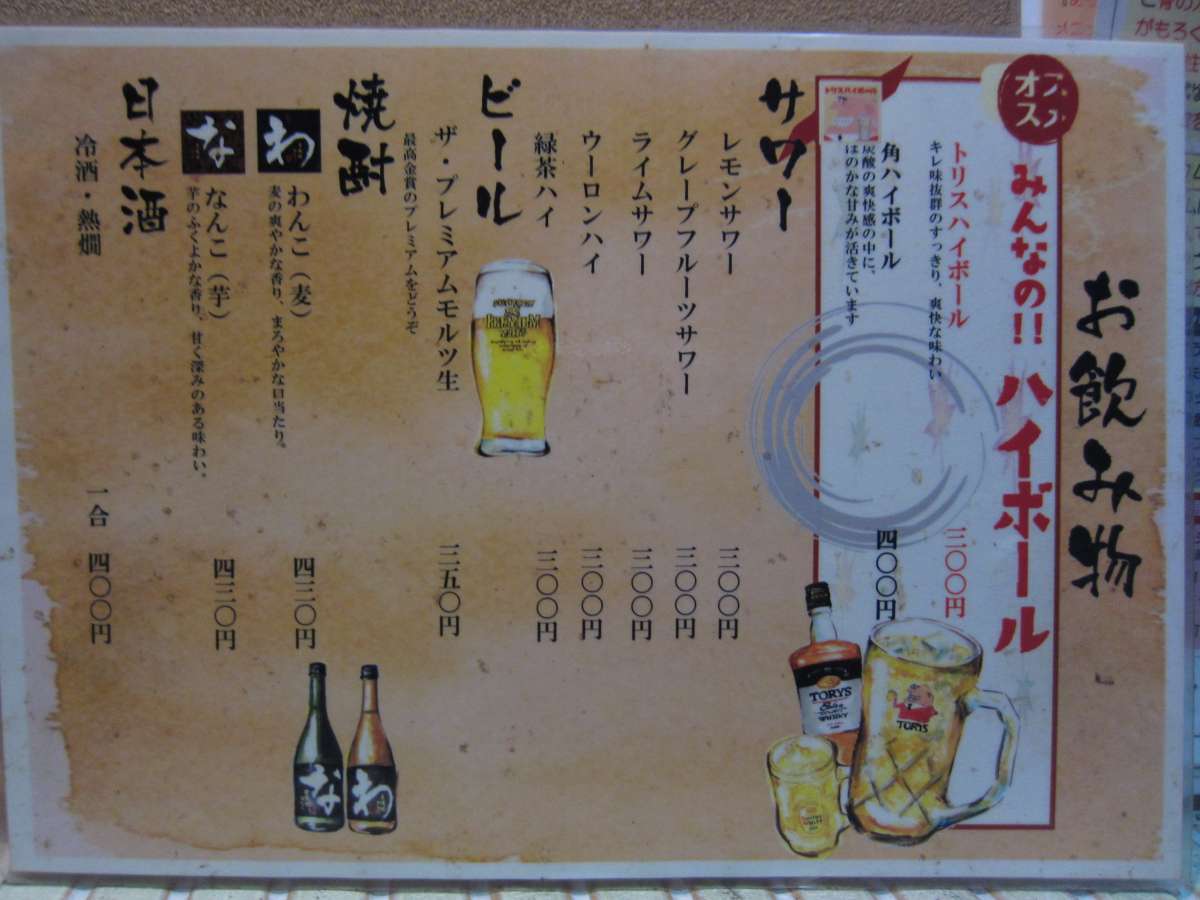 お飲み物
オススメ
みんなの!! ハイボール
トリスハイボール 三〇〇円
キレ味抜群のすっきり、爽快な味わい
トリスハイボール
角ハイボール 四〇〇円
炭酸の爽快感の中に、
ほのかな甘みが活きています
サワー
レモンサワー 三〇〇円
グレープフルーツサワー 三〇〇円
ライムサワー 三〇〇円
ウーロンハイ 三〇〇円
緑茶ハイ 三〇〇円
ビール
ザ・プレミアムモルツ生 三五〇円
最高金賞のプレミアムをどうぞ
焼酎
わ
わんこ（麦） 四三〇円
麦の爽やかな香り、まろやかな口当たり。
な
なんこ（芋） 四三〇円
芋のふくよかな香り、甘く深みのある味わい。
日本酒
冷酒・熱燗 一合 四〇〇円
TORYS
WHISKY
TORYS
な
わ